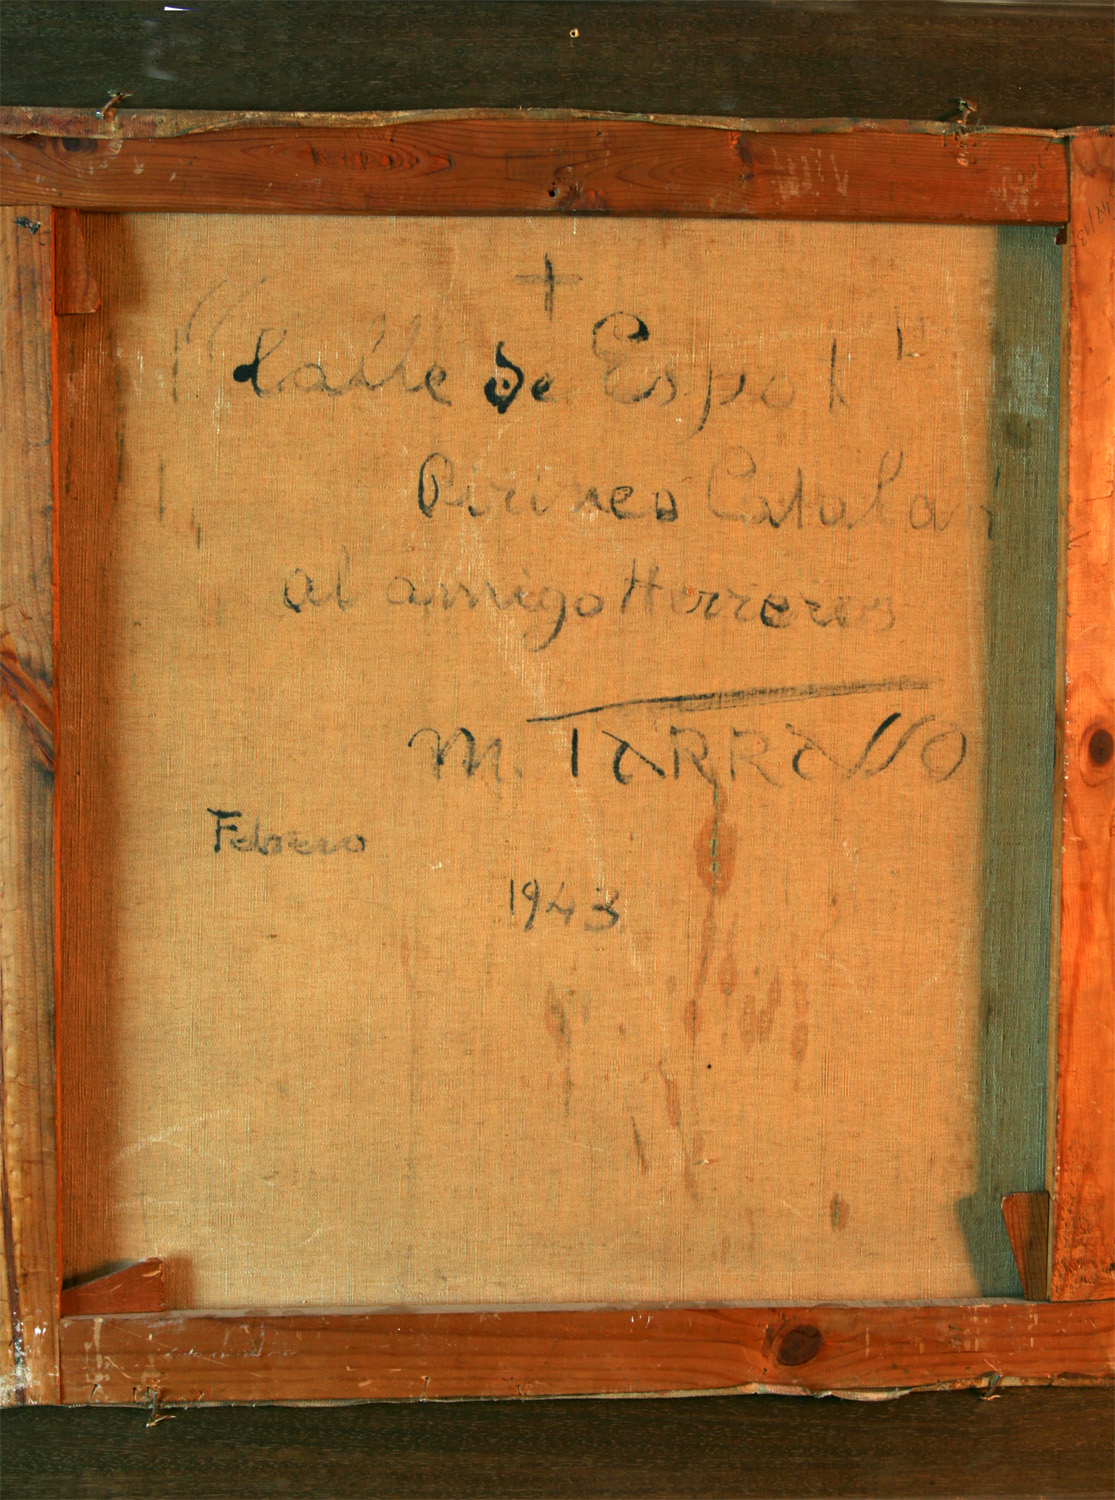 +
"Calle de Espot"
Pirineo Catalan
al amigo Herreros
M. TARRASSO
Febrero
1943